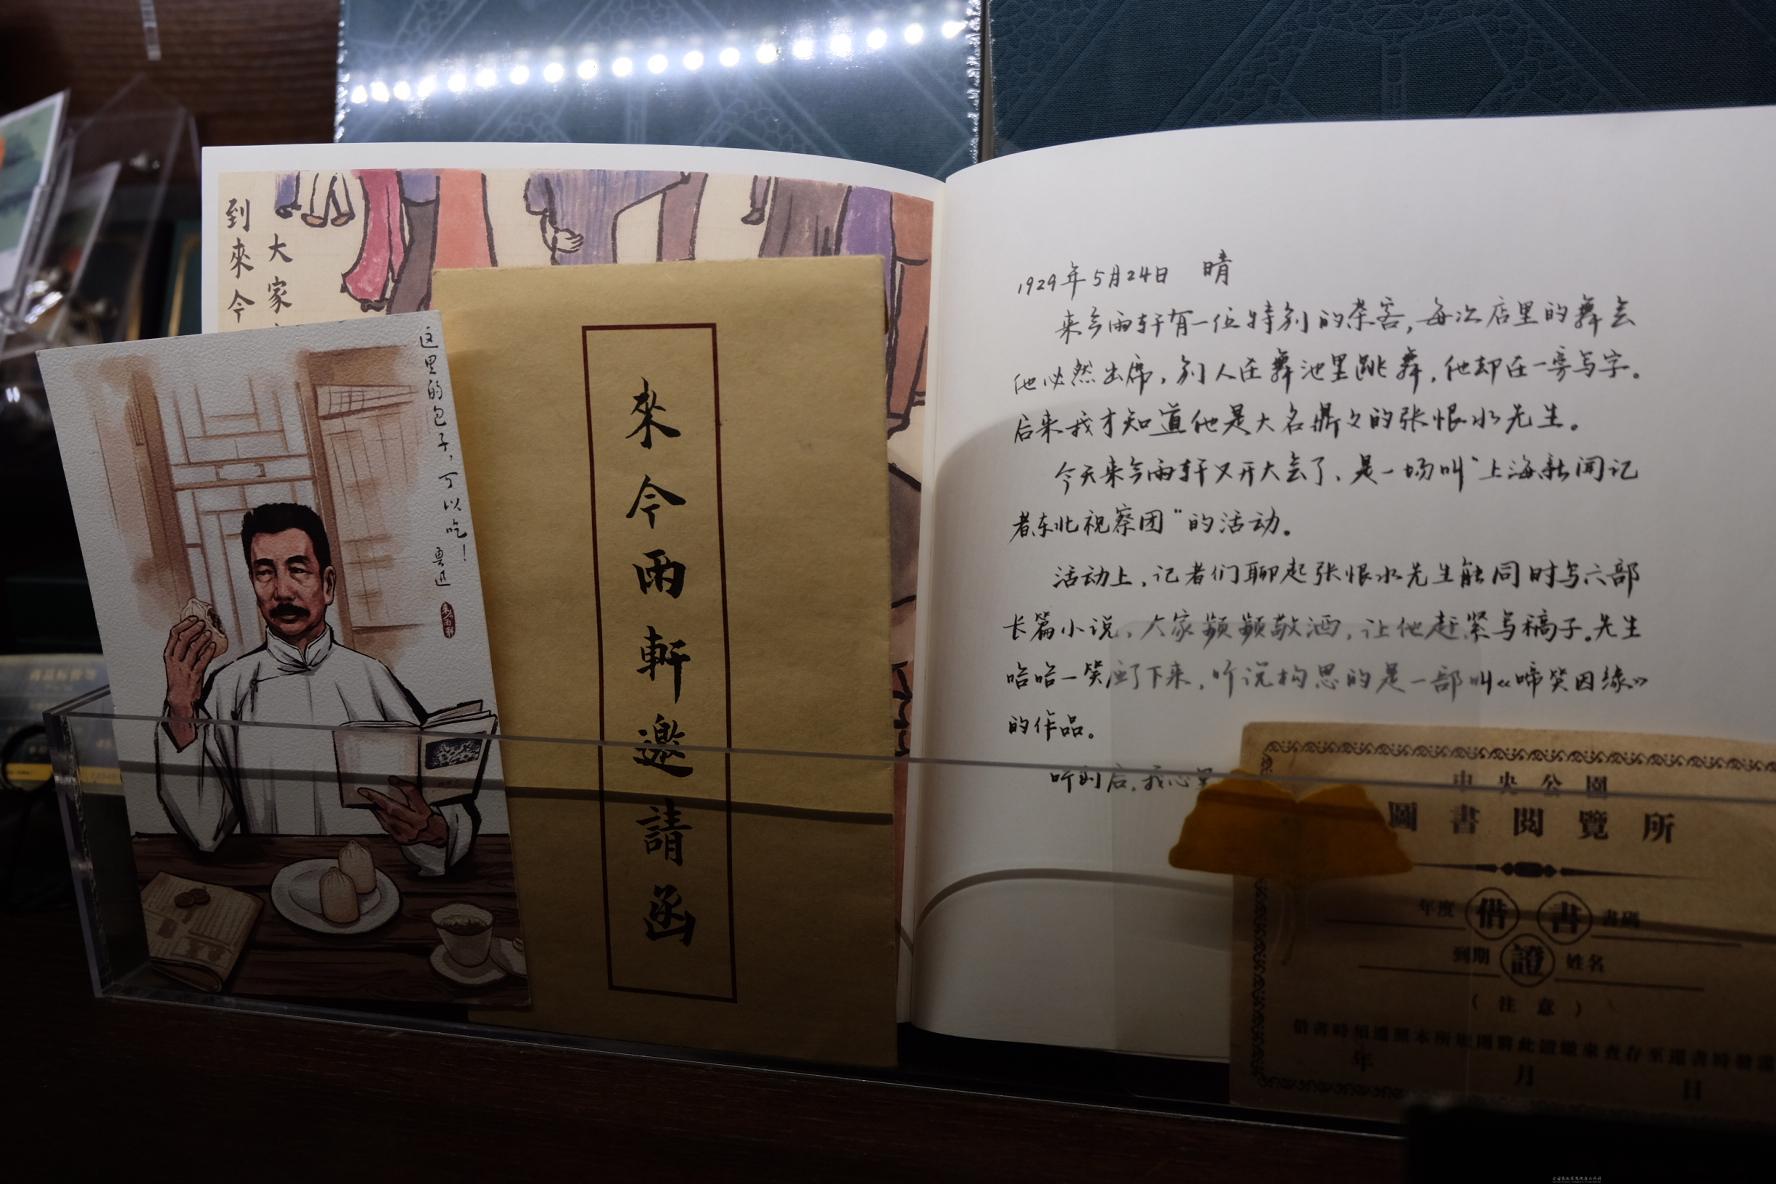 到來今
大家
这里的包子，可以吃！
鲁迅
來今雨軒邀請函
1929年5月24日 晴
来今雨轩有一位特别的茶客，每次店里的舞会
他必然出席，别人在舞池里跳舞，他却在一旁写字。
后来我才知道他是大名鼎々的张恨水先生。
今天来今雨轩又开大会了，是一场叫“上海新闻记
者东北视察团”的活动。
活动上，记者们聊起张恨水先生能同时写六部
长篇小说，大家频频敬酒，让他赶紧写稿子。先生
哈哈一笑应下来，听说构思的是一部叫《啼笑因缘》
的作品。
听到后，我心里
中央公園
圖書閱覽所
年度 借書 書碼
到期 證 姓名
（注意）
年 月 日